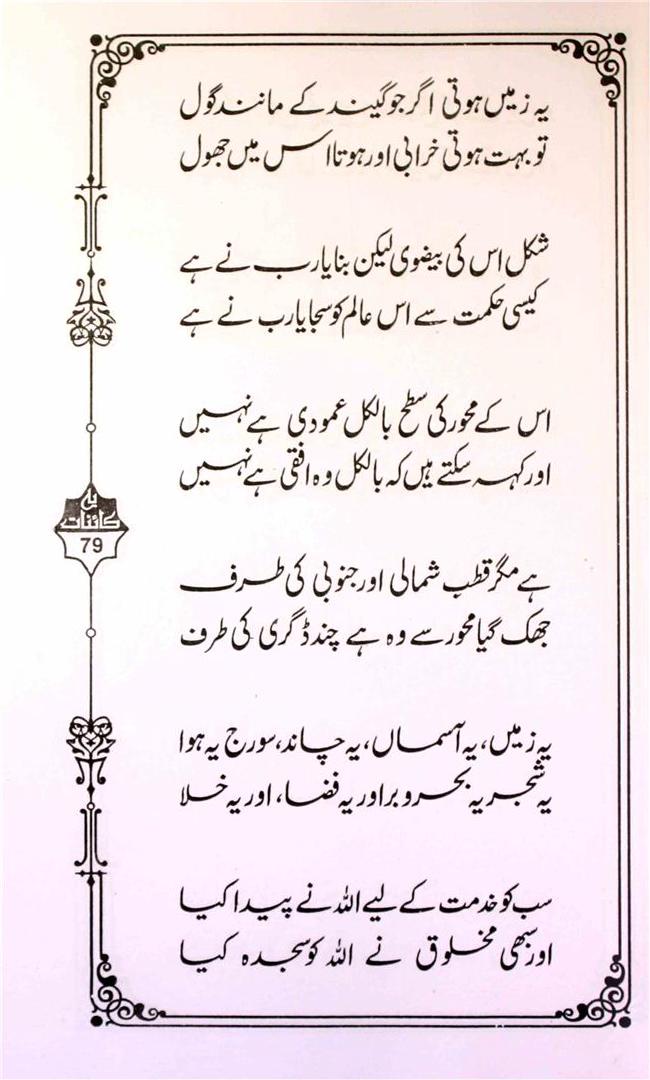 یہ زمیں ہوتی اگر جو گیند کے مانند گول
تو بہت ہوتی خرابی اور ہوتا اس میں جھول
شکل اس کی بیضوی لیکن بنایا رب نے ہے
کیسی حکمت سے اس عالم کو سجایا رب نے ہے
اس کے محور کی سطح بالکل عمودی ہے نہیں
اور کہہ سکتے ہیں کہ بالکل وہ افقی ہے نہیں
ہے مگر قطب شمالی اور جنوبی کی طرف
جھک گیا محور سے وہ ہے چند ڈگری کی طرف
یہ زمیں، یہ آسماں، یہ چاند، سورج یہ ہوا
یہ شجر یہ بحر و بر اور یہ فضا، اور یہ خلا
سب کو خدمت کے لیے اللہ نے پیدا کیا
اور سبھی مخلوق نے اللہ کو سجدہ کیا
یہ
کائنات
79